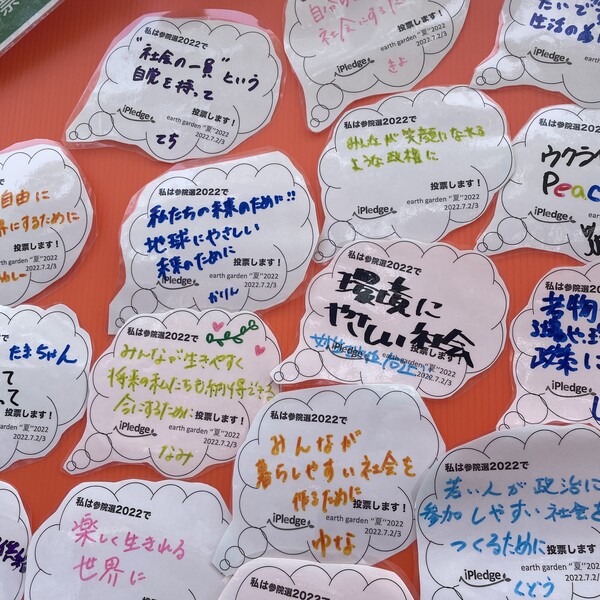 私は参院選2022で
"社会の一員"という
自覚を持って
iPledge
投票します!
earth garden "夏"2022
2022.7.2/3
てち
社会にするため
iPledge
投票します!
earth garden "夏"2022
2022.7.2/3
きよ
生活の
iPledge
投票します!
earth garden "夏"2022
2022.7.2/3
自由に
投票します!
earth garden "夏"2022
2022.7.2/3
私は参院選2022で
私たちの未来のために!!
地球にやさしい
未来のために
iPledge
投票します!
earth garden "夏"2022
2022.7.2/3
かりん
私は参院選2022で
みんなが笑顔になれる
ような政権に
iPledge
投票します!
earth garden "夏"2022
2022.7.2/3
私は参院選2022で
ウクラ
Peac
iPledge
たまちゃん
投票します!
earth garden "夏"2022
2022.7.2/3
私は参院選2022で
みんなが生きやすく
将来の私たちも納得できる
今にするために
投票します!
earth garden "夏"2022
2022.7.2/3
なみ
私は参院選2022で
環境に
やさしい社会
iPledge
投票します!
earth garden "夏"2022
2022.7.2/3
私は参院選2022で
若物
政策に
iPledge
私は参院選2022で
みんなが
暮らしやすい社会を
作るために
iPledge
投票します!
earth garden "夏"2022
2022.7.2/3
ゆな
私は参院選2022で
若い人が政治に
参加しやすい社会を
つくるために
iPledge
投票します!
earth garden "夏"2022
2022.7.2/3
くどう
私は参院選2022で
楽しく生きれる
世界に
私は参院選2022で